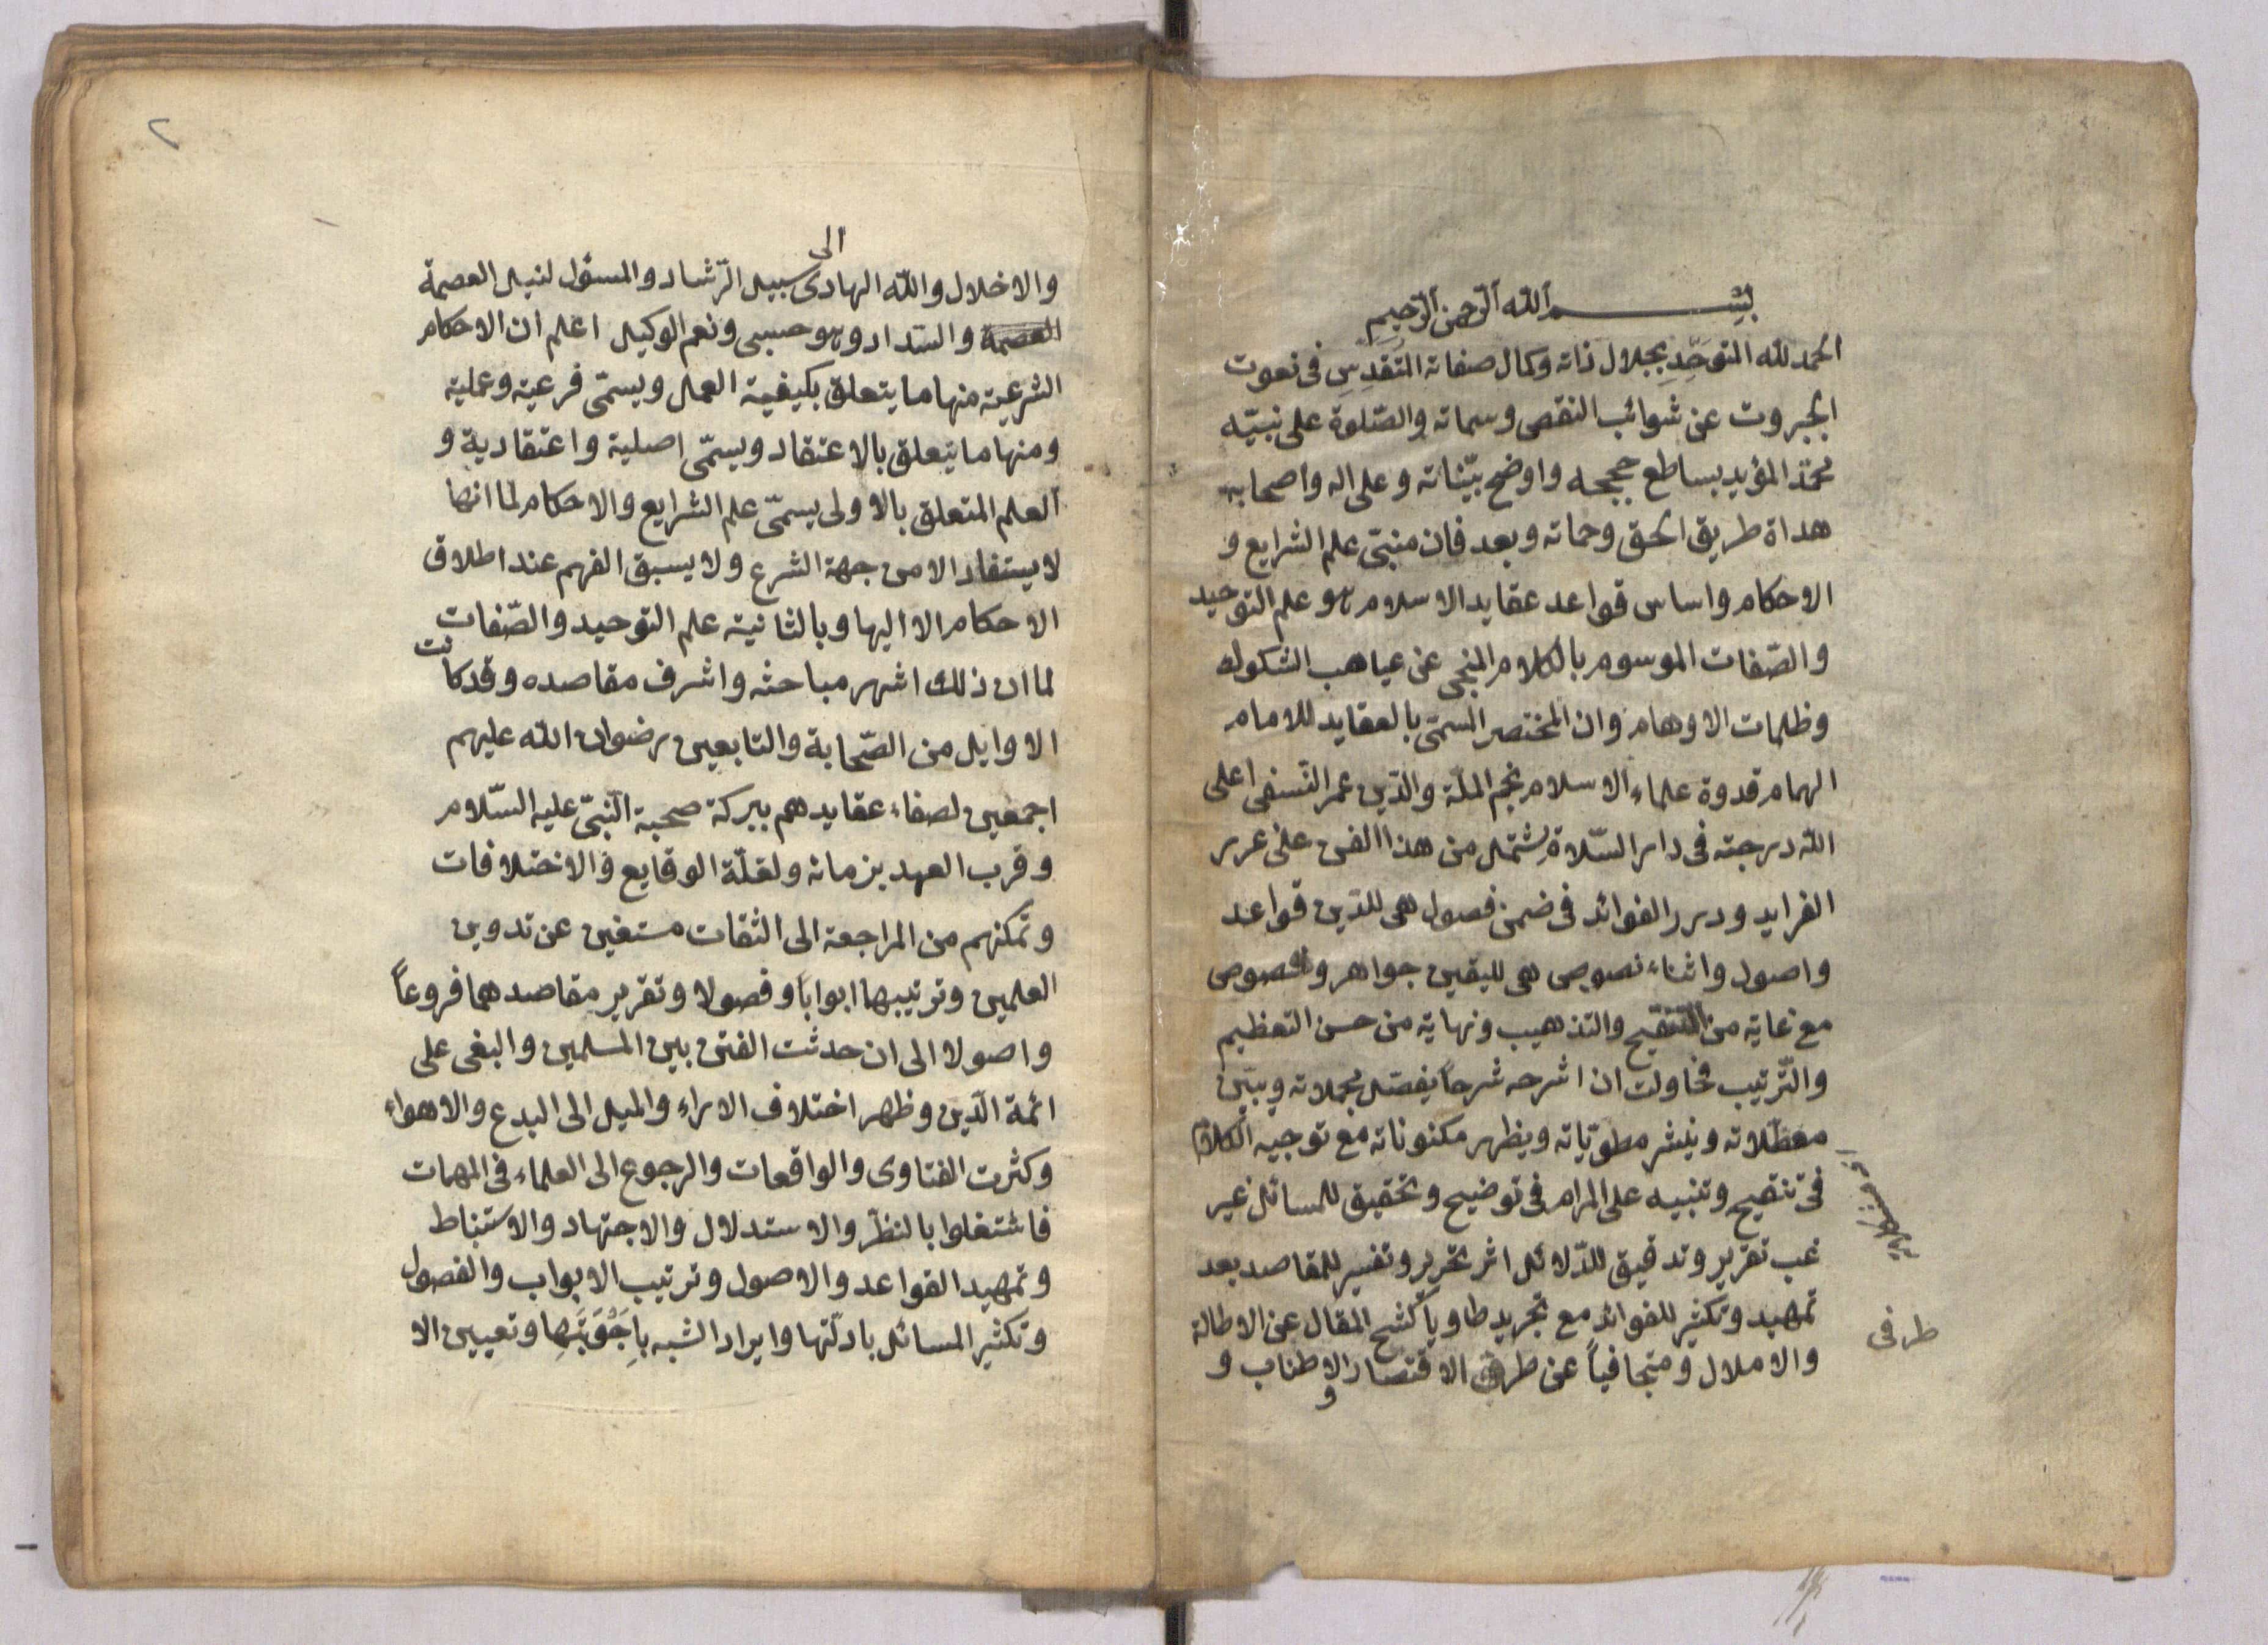 بسم الله الرحمن الرحيم
الحمد لله المتوحد بجلال ذاته وكمال صفاته المتقدس فى نعوت
الجبروت عن شوائب النقص وسماته والصلوة على نبيه
محمد المؤيد بساطع حججه واوضح بيناته وعلى اله واصحابه
هداة طريق الحق وحماته وبعد فان مبنى علم الشرايع و
الاحكام واساس قواعد عقايد الاسلام هو علم التوحيد
والصفات الموسوم بالكلام المنجى عن غياهب الشكوك
وظلمات الاوهام وان المختصر المسمى بالعقايد للامام
الهمام قدوة علماء الاسلام نجم الملة والدين عمر النسفى اعلى
الله درجته فى دار السلامة يشتمل من هذا الفن على غرر
الفرايد ودرر الفوائد فى ضمن فصول هى للدين قواعد
واصول واثناء نصوص هى لليقين جواهر وفصوص
مع غاية من التنقيح والتذهيب ونهاية من حسن التعظيم
والترتيب فحاولت ان اشرحه شرحا يفصل مجملاته ويبين
معضلاته وينشر مطوياته ويظهر مكنوناته مع توجيه الكلام
فى تنقيح وتنبيه على المرام فى توضيح وتحقيق للمسائل غير
غب تقرير وتدقيق للدلائل اثر تحرير وتفسير للمقاصد بعد
تمهيد وتكثير للفوائد مع تجريد طاويا كشح المقال عن الاطالة
والاملال ومتجافيا عن طرفى الاقتصار والاطناب و
طرفى
٢
والاخلال والله الهادى الى سبيل الرشاد والمسؤل لنيل العصمة
العصمة والسداد وهو حسبى ونعم الوكيل اعلم ان الاحكام
الشرعية منها ما يتعلق بكيفية العمل ويسمى فرعية وعملية
ومنها ما يتعلق بالاعتقاد ويسمى اصلية واعتقادية و
العلم المتعلق بالاولى يسمى علم الشرايع والاحكام لما انها
لا يستفاد الا من جهة الشرع ولا يسبق الفهم عند اطلاق
الاحكام الا اليها وبالثانية علم التوحيد والصفات
لما ان ذلك اشهر مباحثه واشرف مقاصده وقد كانت
الاوايل من الصحابة والتابعين رضوان الله عليهم
اجمعين لصفاء عقايدهم ببركة صحبة النبى عليه السلام
وقرب العهد بزمانه ولقلة الوقايع والاختلافات
وتمكنهم من المراجعة الى الثقات مستغين عن تدوين
العلمين وترتيبها ابوابا وفصولا وتقرير مقاصدهما فروعا
واصولا الى ان حدثت الفتن بين المسلمين والبغى على
ائمة الدين وظهر اختلاف الاراء والميل الى البدع والاهواء
وكثرت الفتاوى والواقعات والرجوع الى العلماء فى المهمات
فاشتغلوا بالنظر والاستدلال والاجتهاد والاستنباط
وتمهيد القواعد والاصول وترتيب الابواب والفصول
وتكثير المسائل بادلتها وايراد الشبه باجوبتها وتعيين الا